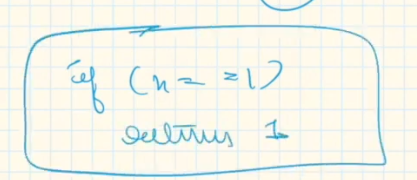 if (n = = 1)
return 1